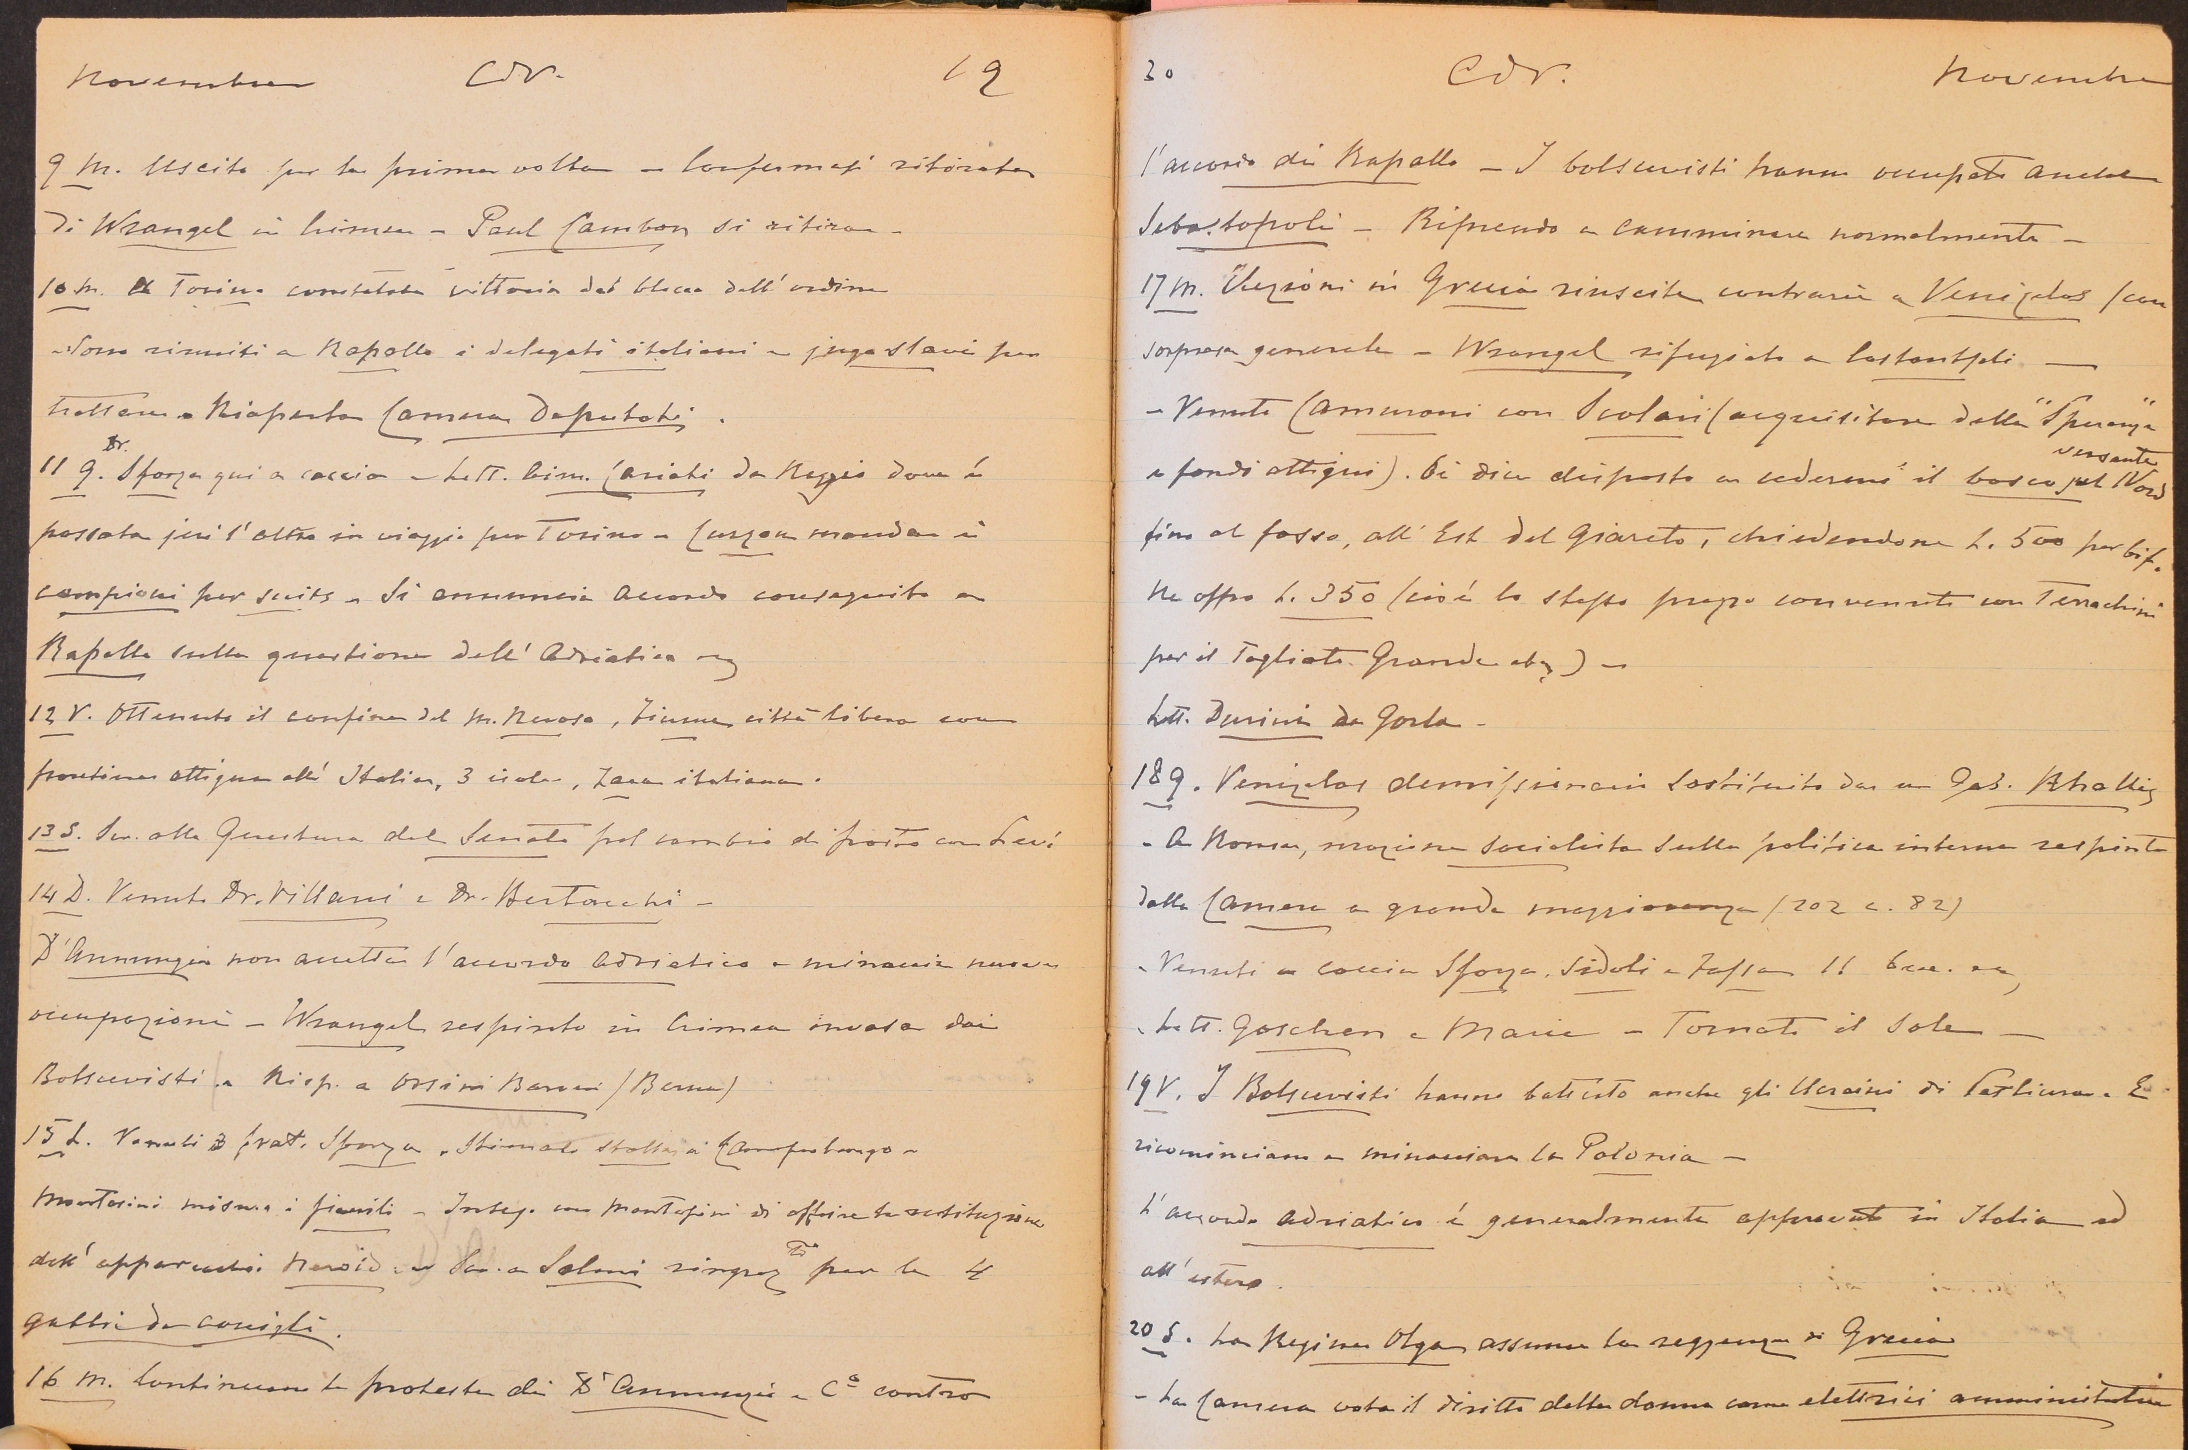 Novembre CdV. 19
9 M. Uscito per la prima volta - Confermasi ritirata
di Wrangel in Crimea - Paul Cambon si ritira -
10 M. A Torino constatata vittoria del blocco dell'ordine
- Sono riuniti a Rapallo i delegati italiani e jugoslavi per
trattare - Riaperta Camera Deputati.
11 G. Dr. Sforza qui a caccia - Lett. Cim. Cariati da Reggio dove è
passata jeri l'altro in viaggio per Torino - Curzon manda i
campioni per suits - Si annuncia accordo conseguito a
Rapallo sulla questione dell'Adriatico -
12 V. Ottenuto il confine del M. Nevoso, Fiume città libera con
frontiera attigua all'Italia, 3 isole, Zara italiana.
13 S. Scr. alla Questura del Senato pel cambio di posto con Levi
14 D. Venuto Dr. Villani e Dr. Bertocchi -
D'Annunzio non accetta l'accordo Adriatico e minaccia nuove
occupazioni - Wrangel respinto in Crimea invasa dai
Bolscevisti - Risp. a Orsini Baroni (Berna)
15 L. Venuti 3 frat. Sforza - Stimate stalla a Campolungo -
Montosini misura i fienili - Inteso con Montosini di offrire la restituzione
dell'apparecchio - Scr. a Solani ringraz.to per le 4
gabbie da conigli.
16 M. Continuano le proteste di D'Annunzio e C.o contro
20 CdV. Novembre
l'accordo di Rapallo - I bolscevisti hanno occupato anche
Sebastopoli - Riprendo a camminare normalmente -
17 M. Elezioni in Grecia riuscite contrarie a Venizelos (con
sorpresa generale - Wrangel rifugiato a Costantpli -
- Venuto Camuroni con Scolari (acquisitore della "Speranza"
e fondi attigui). Si dice disposto a cedermi il bosco versante Nord
fino al fosso, all'Est del Giareto, chiedendone L. 500 per bif.
Ne offro L. 350 (cioè lo stesso prezzo convenuto con Terrachini
per il Tagliato Grande etc) -
Lett. Durini da Gorla -
18 G. Venizelos demissionario sostituito da un Gab. Rhallis
- A Roma, mozione socialista sulla politica interna respinta
dalla Camera a grande maggioranza (202 c. 82)
- Venuti a caccia Sforza, Sidoli e Fossa 11 bec.
- Lett. Goschen e Marie - Tornato il Sole -
19 V. I Bolscevisti hanno battuto anche gli Ucraini di Petliura. E
ricominciano a minacciare la Polonia -
L'accordo adriatico è generalmente approvato in Italia ed
all'estero.
20 S. La Regina Olga assume la reggenza di Grecia
- La Camera vota il diritto delle donne come elettrici amministrative